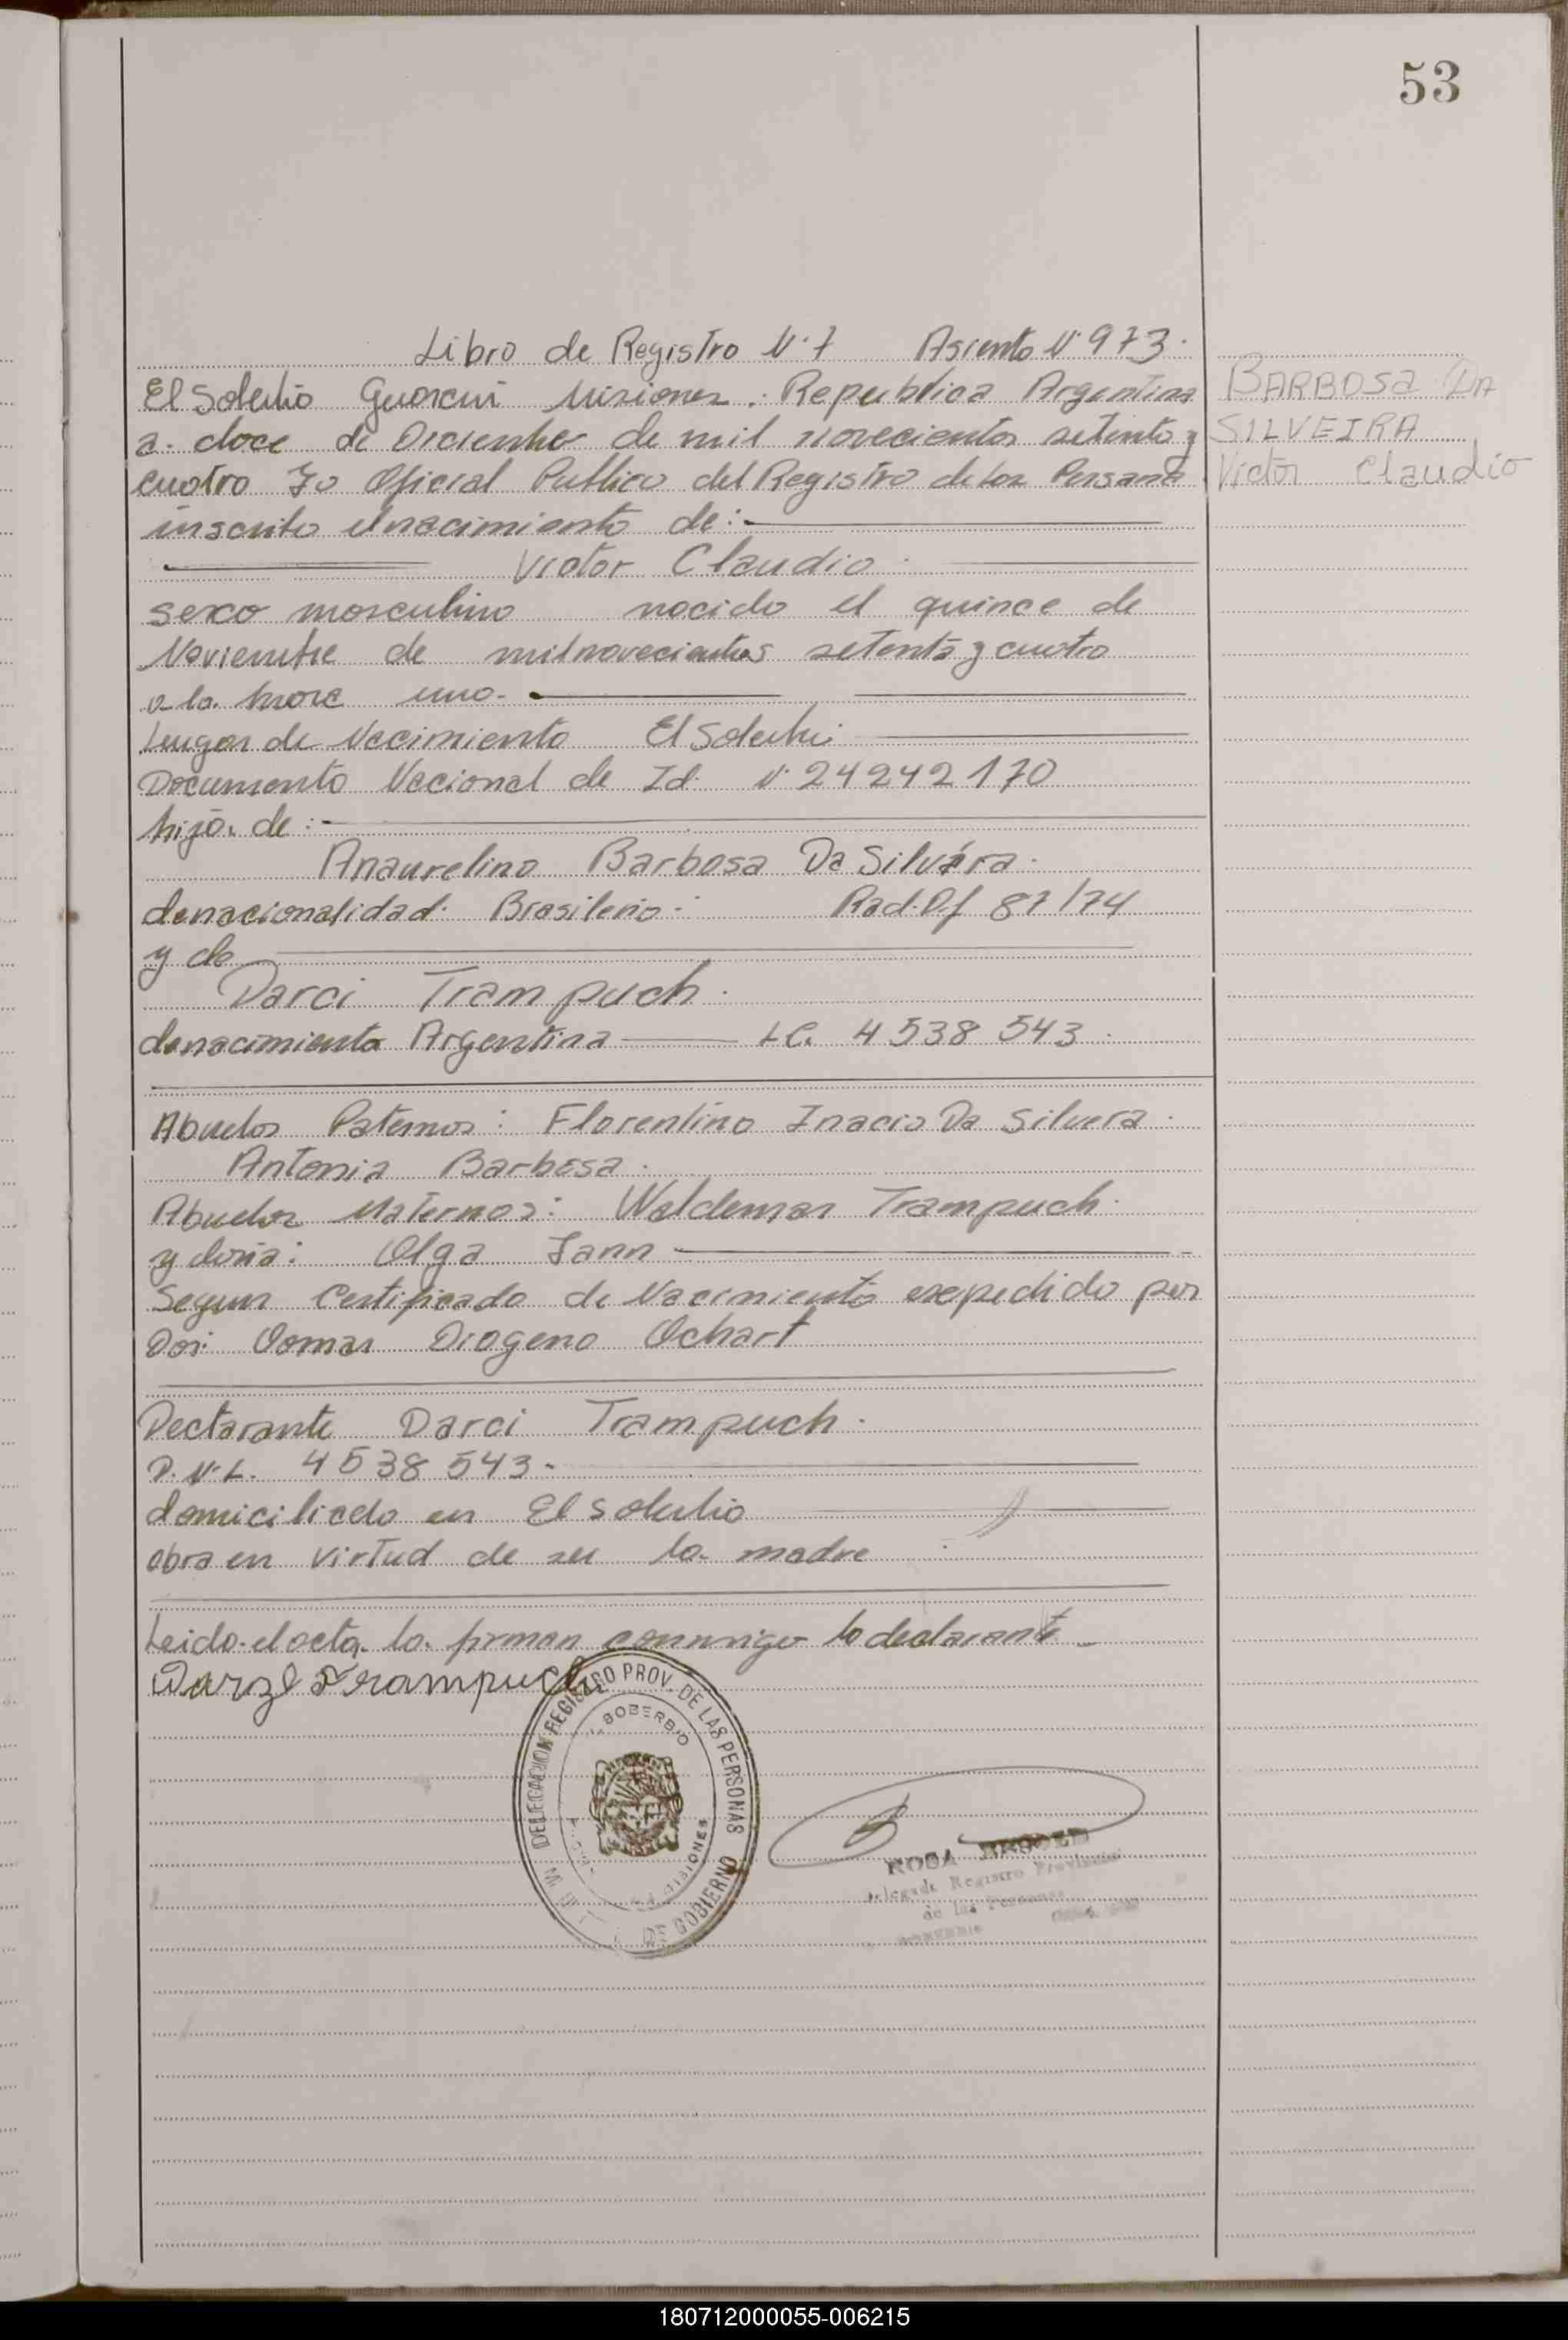 53
Libro de Registro N.º 7 Asiento Nº 973.
El Soberbio Guarani Misiones. Republica Argentina
a doce de Diciembre de mil novecientos setenta y
cuatro Yo Oficial Publico del Registro de las Persona
inscribo el nacimiento de:
Victor Claudio
sexo masculino nacido el quince de
Noviembre de mil novecientos setenta y cuatro
a la hora uno.
Lugar de Nacimiento El Soberbio
Documento Nacional de Id. Nº 24242170
hijo. de:
Anaurelino Barbosa Da Silvéra.
denacionalidad. Brasileño. Rad. Df 87/74
y de
Darci Trampuch.
denacimiento Argentina LC. 4538543.
Abuelos Paternos: Florentino Inacio Da Silvera.
Antonia Barbosa.
Abuelos Maternos: Waldemar Trampuch.
y doña: Olga Jann
Segun Certificado de Nacimiento expedido por
Dor. Oomar Diogeno Ochart
Declarante Darci Trampuch.
D.N.I. 4538543.
domiciliado en El Soberbio
obra en virtud de ser la madre
Leido el acta la firman conmigo la declarante
Trampuch
DELEGACION REGISTRO PROV. DE LAS PERSONAS
SOBERBIO
MISIONES
DE GOBIERNO
ROSA
Delegada Registro Provincial
de las Personas
BARBOSA DA
SILVEIRA
Victor Claudio
180712000055-006215